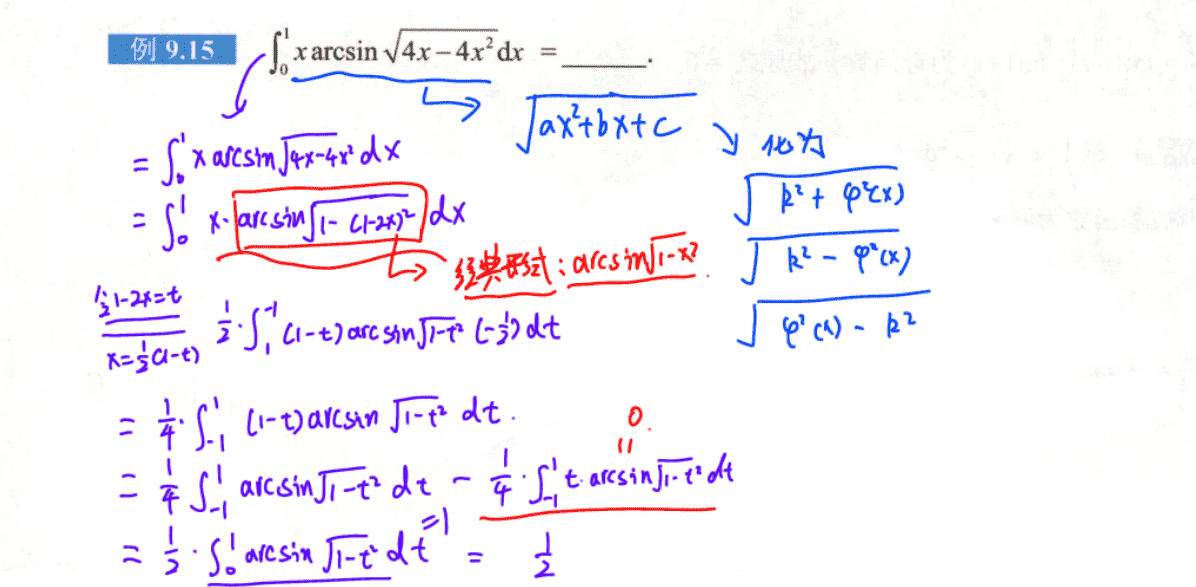 例 9.15 ∫₀¹ x arcsin √(4x−4x²) dx = ______.
√(ax²+bx+c)
化为
√(k²+φ²(x))
√(k²−φ²(x))
√(φ²(x)−k²)
= ∫₀¹ x arcsin √(4x−4x²) dx
= ∫₀¹ x· arcsin √(1−(1−2x)²) dx
经典形式: arcsin √(1−x²)
令1−2x=t
x=½(1−t)
½·∫₁⁻¹ (1−t) arcsin √(1−t²) (−½) dt
= ¼·∫₋₁¹ (1−t) arcsin √(1−t²) dt.
0.
=
= ¼ ∫₋₁¹ arcsin √(1−t²) dt − ¼·∫₋₁¹ t·arcsin √(1−t²) dt
= ½·∫₀¹ arcsin √(1−t²) dt =1 = ½